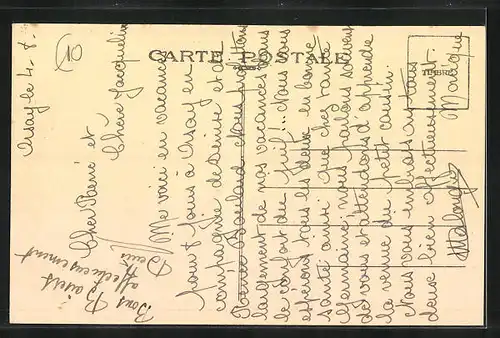 CARTE POSTALE
TIMBRE
10
Cissay le 4. 8.
Cher Pierre et
Chère Jacqueline
Me voici en vacances
pour 8 jours à Cissay en
compagnie de Denise et de
Nous profitons
largement de nos vacances sous
le confort du Juif!! Nous vous
espérons tous les deux en bonne
santé ainsi que chez tante
Germaine, nous parlons souvent
de vous et attendons d'apprendre
la venue du petit cousin.
Nous vous embrassons tous
deux bien affectueusement.
Monique
Bons Baisers
affectueusement
Denise